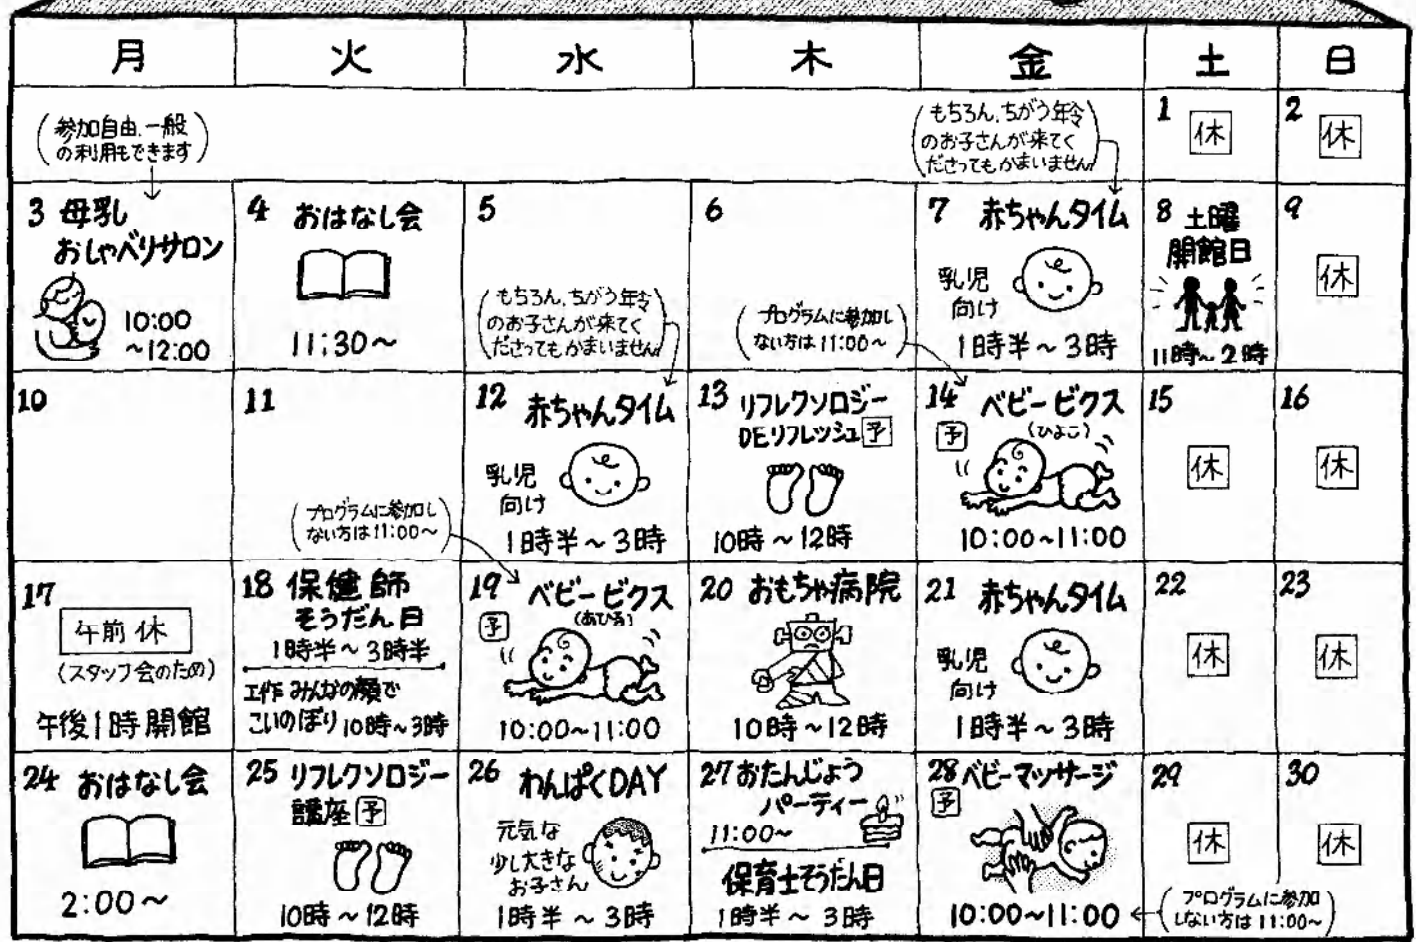 月 火 水 木 金 土 日
(参加自由、一般
の利用もできます)
(もちろん、ちがう年令
のお子さんが来てく
ださってもかまいません)
1 休
2 休
3 母乳
おしゃべりサロン
10:00
～12:00
4 おはなし会
11:30～
5
(もちろん、ちがう年令
のお子さんが来てく
ださってもかまいません)
6
(プログラムに参加し
ない方は11:00～)
7 赤ちゃんタイム
乳児
向け
1時半～3時
8 土曜
開館日
11時～2時
9
休
10
11
(プログラムに参加し
ない方は11:00～)
12 赤ちゃんタイム
乳児
向け
1時半～3時
13 リフレクソロジー
DEリフレッシュ予
10時～12時
14 ベビービクス
予 (ひよこ)
10:00~11:00
15
休
16
休
17
午前休
(スタッフ会のため)
午後1時開館
18 保健師
そうだん日
1時半～3時半
工作 みんなの顔で
こいのぼり 10時～3時
19 ベビービクス
予 (あひる)
10:00~11:00
20 おもちゃ病院
10時～12時
21 赤ちゃんタイム
乳児
向け
1時半～3時
22
休
23
休
24 おはなし会
2:00～
25 リフレクソロジー
講座 予
10時～12時
26 わんぱくDAY
元気な
少し大きな
お子さん
1時半～3時
27 おたんじょう
パーティー
11:00～
保育士そうだん日
1時半～3時
28 ベビーマッサージ
予
10:00~11:00
(プログラムに参加
しない方は11:00～)
29
休
30
休